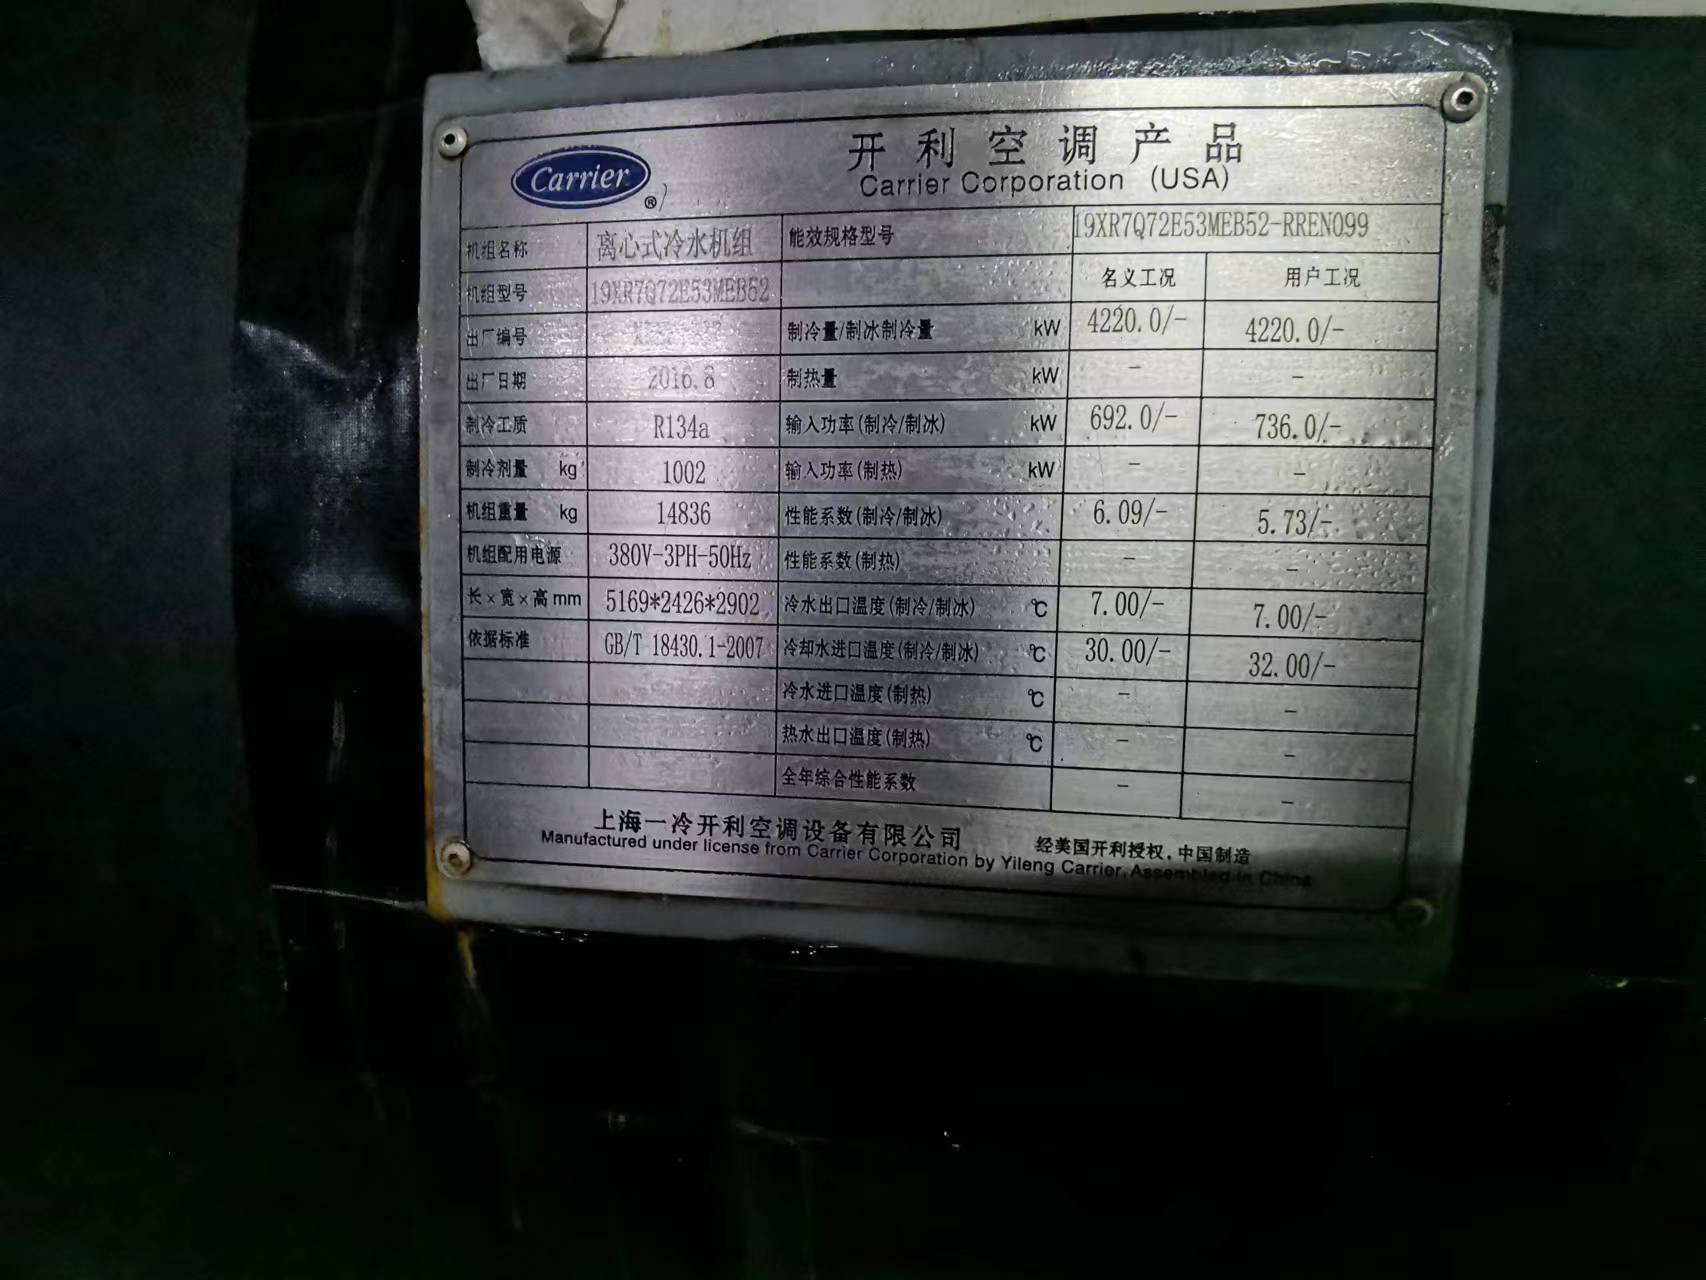 Carrier ®
开利空调产品
Carrier Corporation (USA)
机组名称 离心式冷水机组 能效规格型号 19XR7Q72E53MEB52-RREN099
机组型号 19XR7Q72E53MEB52 名义工况 用户工况
出厂编号 制冷量/制冰制冷量 kW 4220.0/- 4220.0/-
出厂日期 2016.8 制热量 kW - -
制冷工质 R134a 输入功率(制冷/制冰) kW 692.0/- 736.0/-
制冷剂量 kg 1002 输入功率(制热) kW - -
机组重量 kg 14836 性能系数(制冷/制冰) 6.09/- 5.73/-
机组配用电源 380V-3PH-50Hz 性能系数(制热) - -
长×宽×高 mm 5169*2426*2902 冷水出口温度(制冷/制冰) ℃ 7.00/- 7.00/-
依据标准 GB/T 18430.1-2007 冷却水进口温度(制冷/制冰) ℃ 30.00/- 32.00/-
冷水进口温度(制热) ℃ - -
热水出口温度(制热) ℃ - -
全年综合性能系数 - -
上海一冷开利空调设备有限公司 经美国开利授权,中国制造
Manufactured under license from Carrier Corporation by Yileng Carrier, Assembled in China